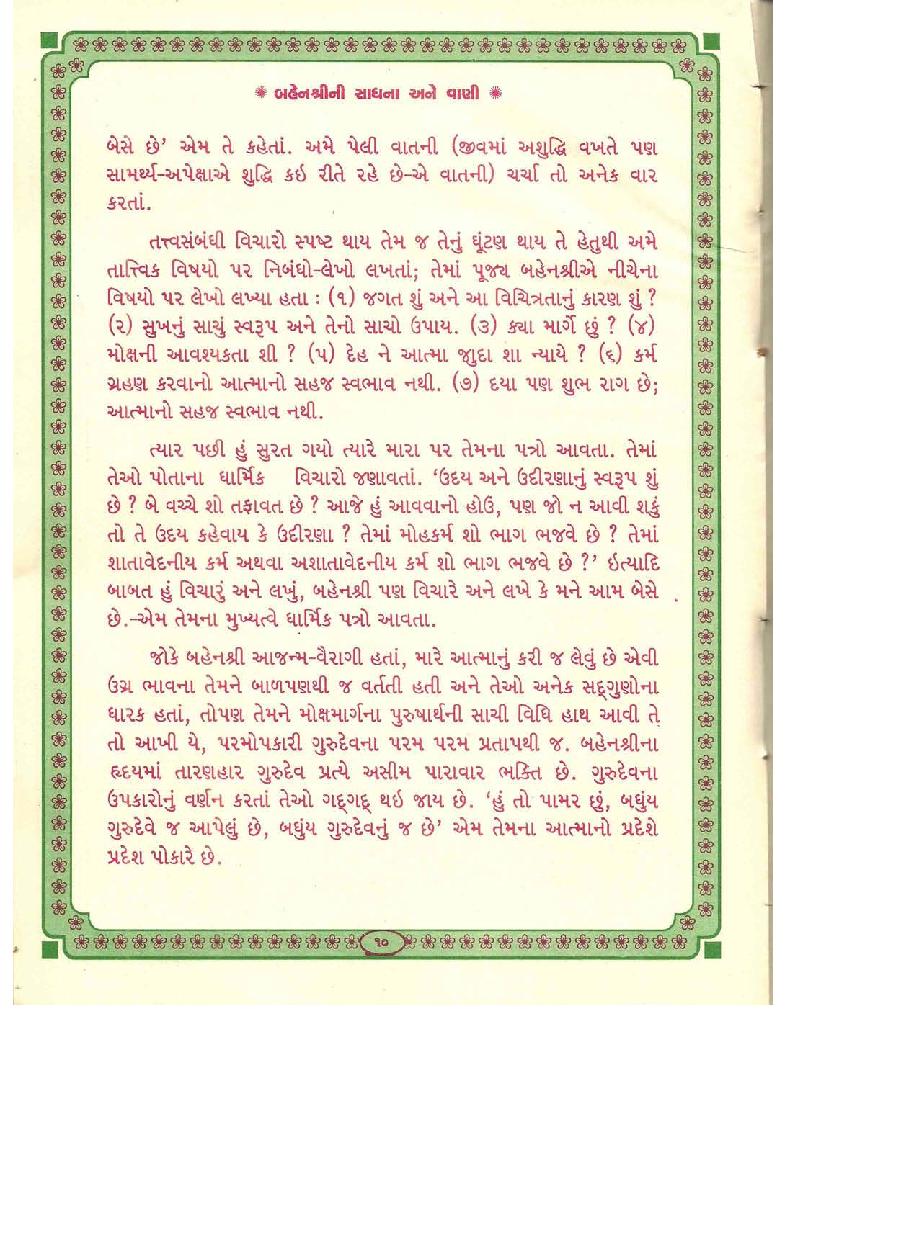 ✺ બહેનશ્રીની સાધના અને વાણી ✺
બેસે છે’ એમ તે કહેતાં. અમે પેલી વાતની (જીવમાં અશુદ્ધિ વખતે પણ
સામર્થ્ય-અપેક્ષાએ શુદ્ધિ કઇ રીતે રહે છે-એ વાતની) ચર્ચા તો અનેક વાર
કરતાં.
તત્ત્વસંબંધી વિચારો સ્પષ્ટ થાય તેમ જ તેનું ઘૂંટણ થાય તે હેતુથી અમે
તાત્ત્વિક વિષયો પર નિબંધો-લેખો લખતાં; તેમાં પૂજ્ય બહેનશ્રીએ નીચેના
વિષયો પર લેખો લખ્યા હતા : (૧) જગત શું અને આ વિચિત્રતાનું કારણ શું ?
(૨) સુખનું સાચું સ્વરૂપ અને તેનો સાચો ઉપાય. (૩) ક્યા માર્ગે છું ? (૪)
મોક્ષની આવશ્યકતા શી ? (૫) દેહ ને આત્મા જાુદા શા ન્યાયે ? (૬) કર્મ
ગ્રહણ કરવાનો આત્માનો સહજ સ્વભાવ નથી. (૭) દયા પણ શુભ રાગ છે;
આત્માનો સહજ સ્વભાવ નથી.
ત્યાર પછી હું સુરત ગયો ત્યારે મારા પર તેમના પત્રો આવતા. તેમાં
તેઓ પોતાના ધાર્મિક વિચારો જણાવતાં. ‘ઉદય અને ઉદીરણાનું સ્વરૂપ શું
છે ? બે વચ્ચે શો તફાવત છે ? આજે હું આવવાનો હોઉં, પણ જો ન આવી શકું
તો તે ઉદય કહેવાય કે ઉદીરણા ? તેમાં મોહકર્મ શો ભાગ ભજવે છે ? તેમાં
શાતાવેદનીય કર્મ અથવા અશાતાવેદનીય કર્મ શો ભાગ ભજવે છે ?’ ઇત્યાદિ
બાબત હું વિચારું અને લખું, બહેનશ્રી પણ વિચારે અને લખે કે મને આમ બેસે
છે.-એમ તેમના મુખ્યત્વે ધાર્મિક પત્રો આવતા.
જોકે બહેનશ્રી આજન્મ-વૈરાગી હતાં, મારે આત્માનું કરી જ લેવું છે એવી
ઉગ્ર ભાવના તેમને બાળપણથી જ વર્તતી હતી અને તેઓ અનેક સદ્‌ગુણોના
ધારક હતાં, તોપણ તેમને મોક્ષમાર્ગના પુરુષાર્થની સાચી વિધિ હાથ આવી તે
તો આખી યે, પરમોપકારી ગુરુદેવના પરમ પરમ પ્રતાપથી જ. બહેનશ્રીના
હૃદયમાં તારણહાર ગુરુદેવ પ્રત્યે અસીમ પારાવાર ભક્તિ છે. ગુરુદેવના
ઉપકારોનું વર્ણન કરતાં તેઓ ગદ્‌ગદ્ થઇ જાય છે. ‘હું તો પામર છું, બધુંય
ગુરુદેવે જ આપેલું છે, બધુંય ગુરુદેવનું જ છે’ એમ તેમના આત્માનો પ્રદેશે
પ્રદેશ પોકારે છે.
૧૦